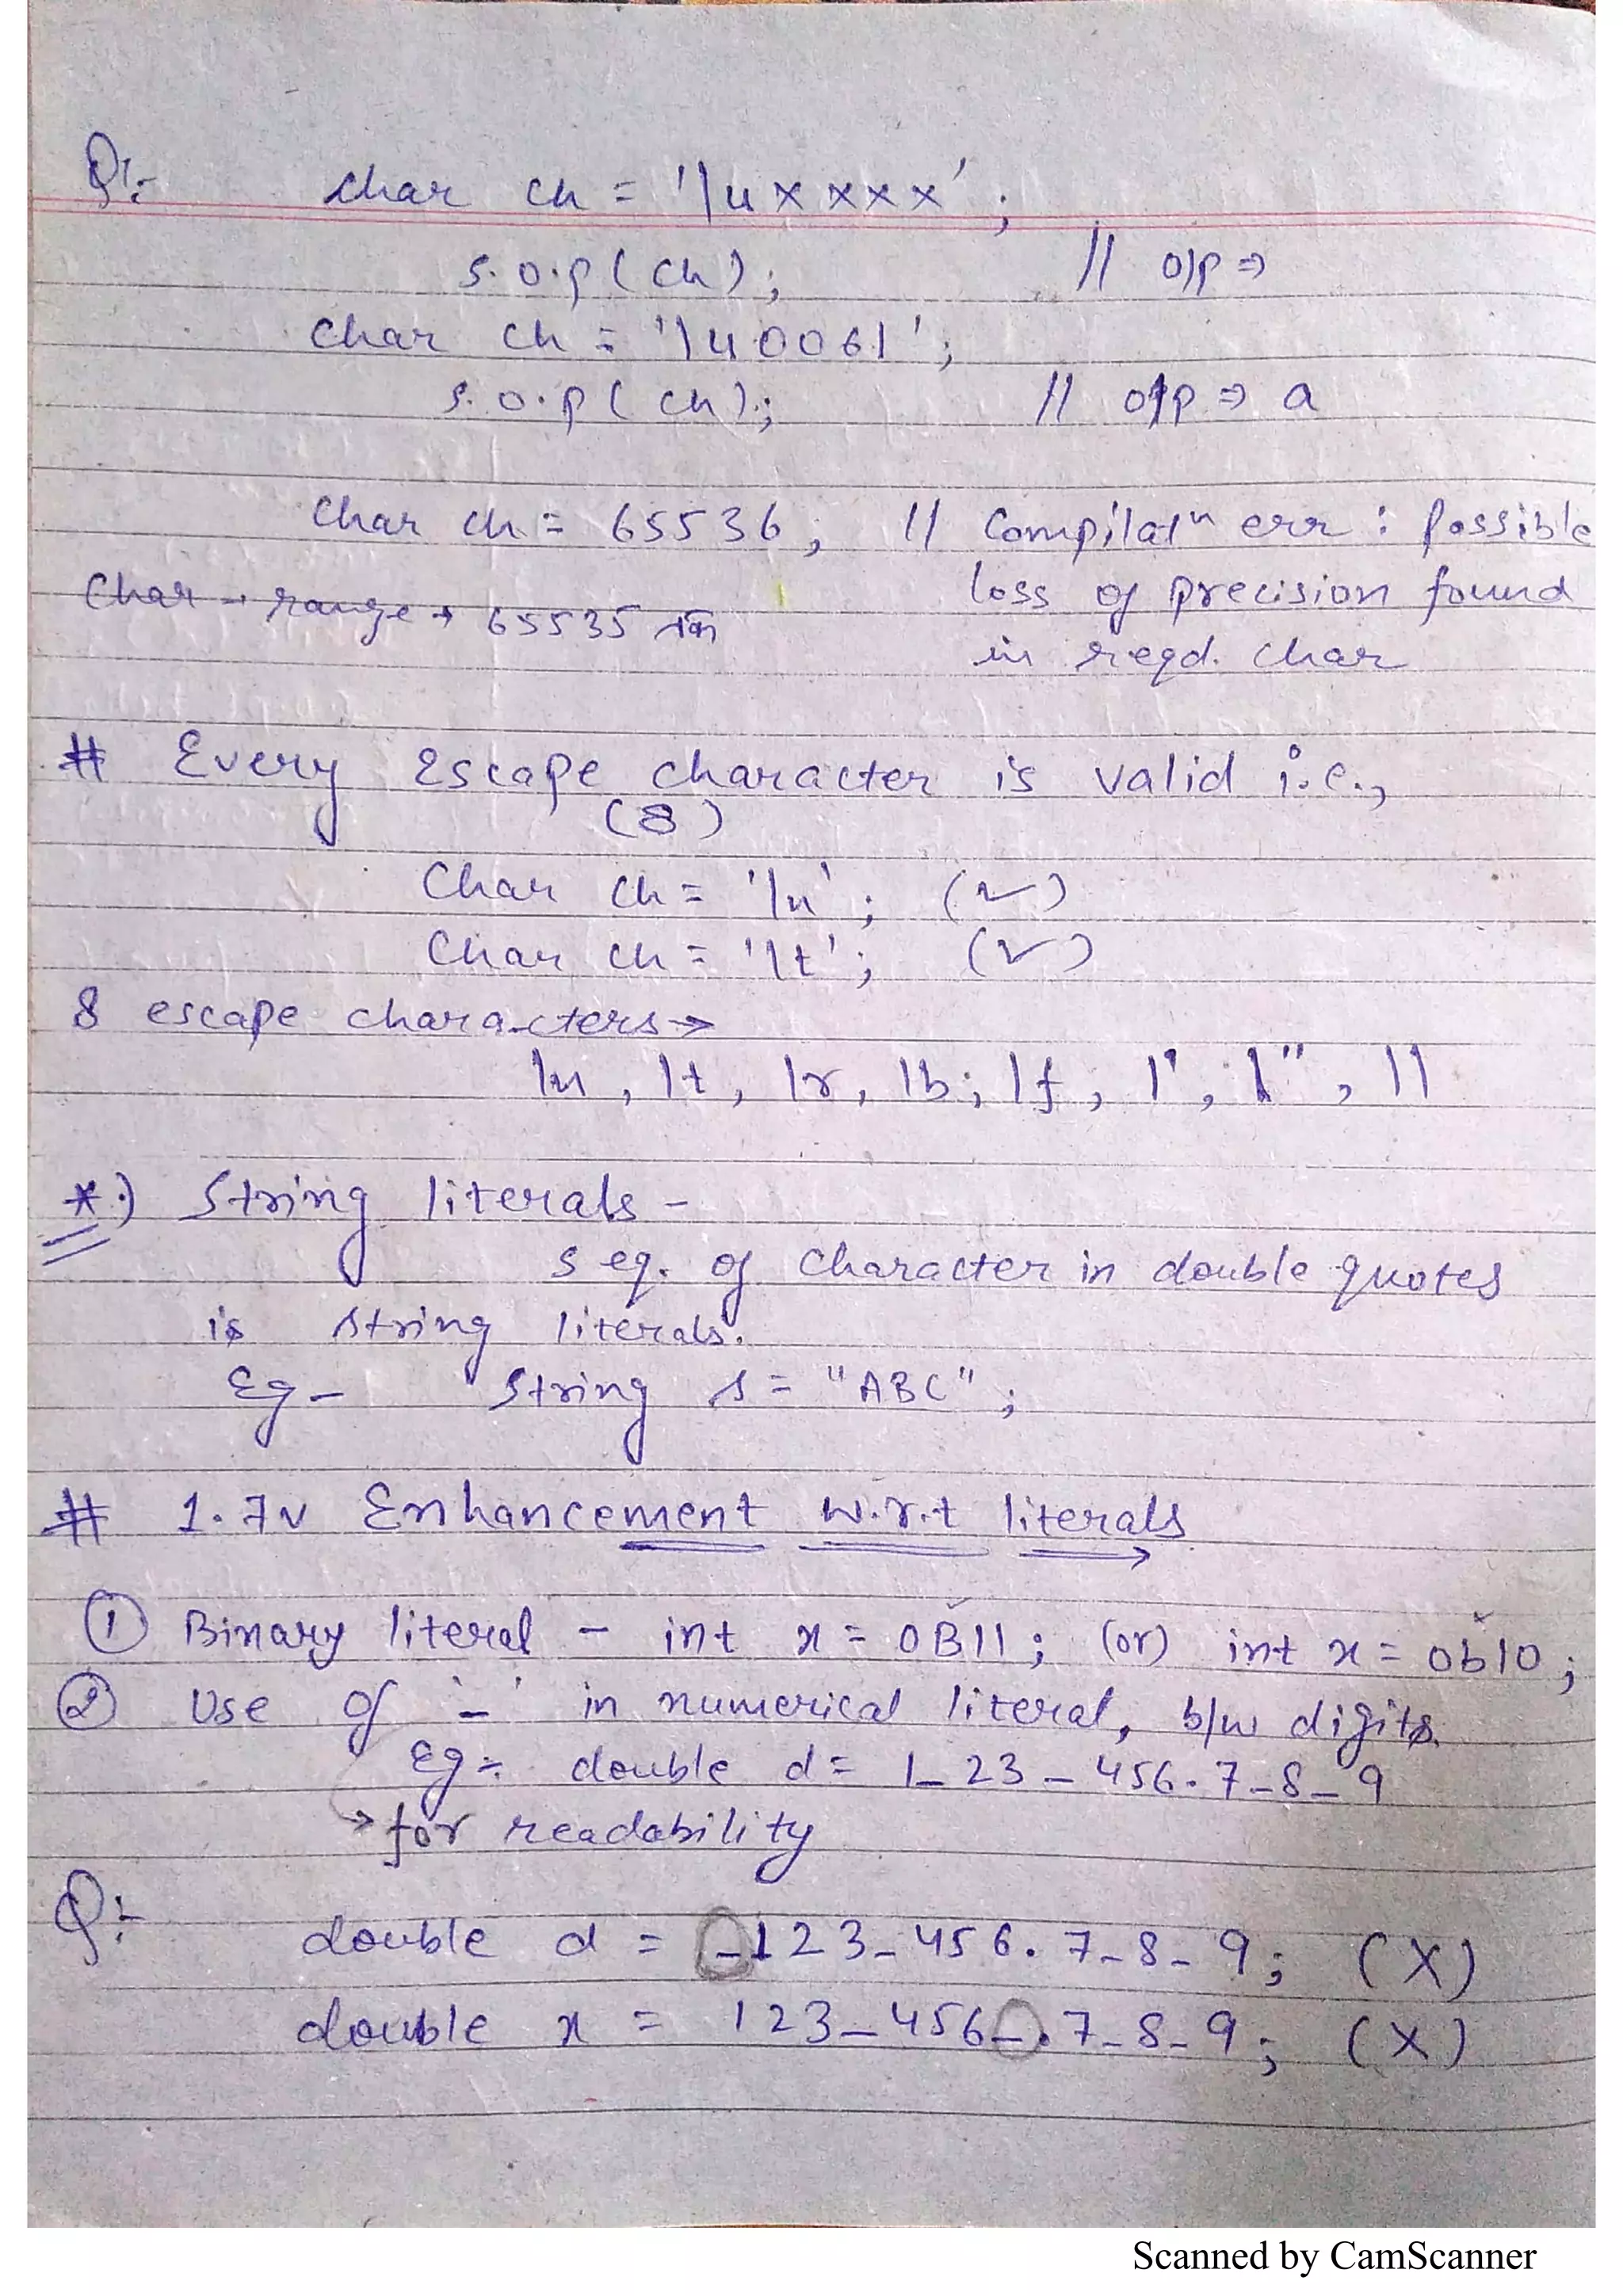 Q:- char ch = '\uxxxx';
s.o.p(ch); // o/p ⇒
char ch = '\u0061';
s.o.p(ch); // o/p ⇒ a
char ch = 65536; // Compilatⁿ err : possible
loss of precision found
in reqd. char
char → range → 65535 तक
# Every escape character is valid i.e.,
(8)
char ch = '\n'; (✓)
char ch = '\t'; (✓)
8 escape characters →
\n, \t, \r, \b, \f, \', \", \\
*.) String literals -
seq. of character in double quotes
is string literals.
Eg- String s = "ABC";
# 1.7v Enhancement w.r.t literals
① Binary literal - int x = 0B11; (or) int x = 0b10;
② Use of '_' in numerical literal, b/w digits.
Eg:- double d = 1_23_456.7_8_9
→ for readability
Q:- double d = _123_456.7_8_9; (X)
double x = 123_456_.7_8_9; (X)
Scanned by CamScanner